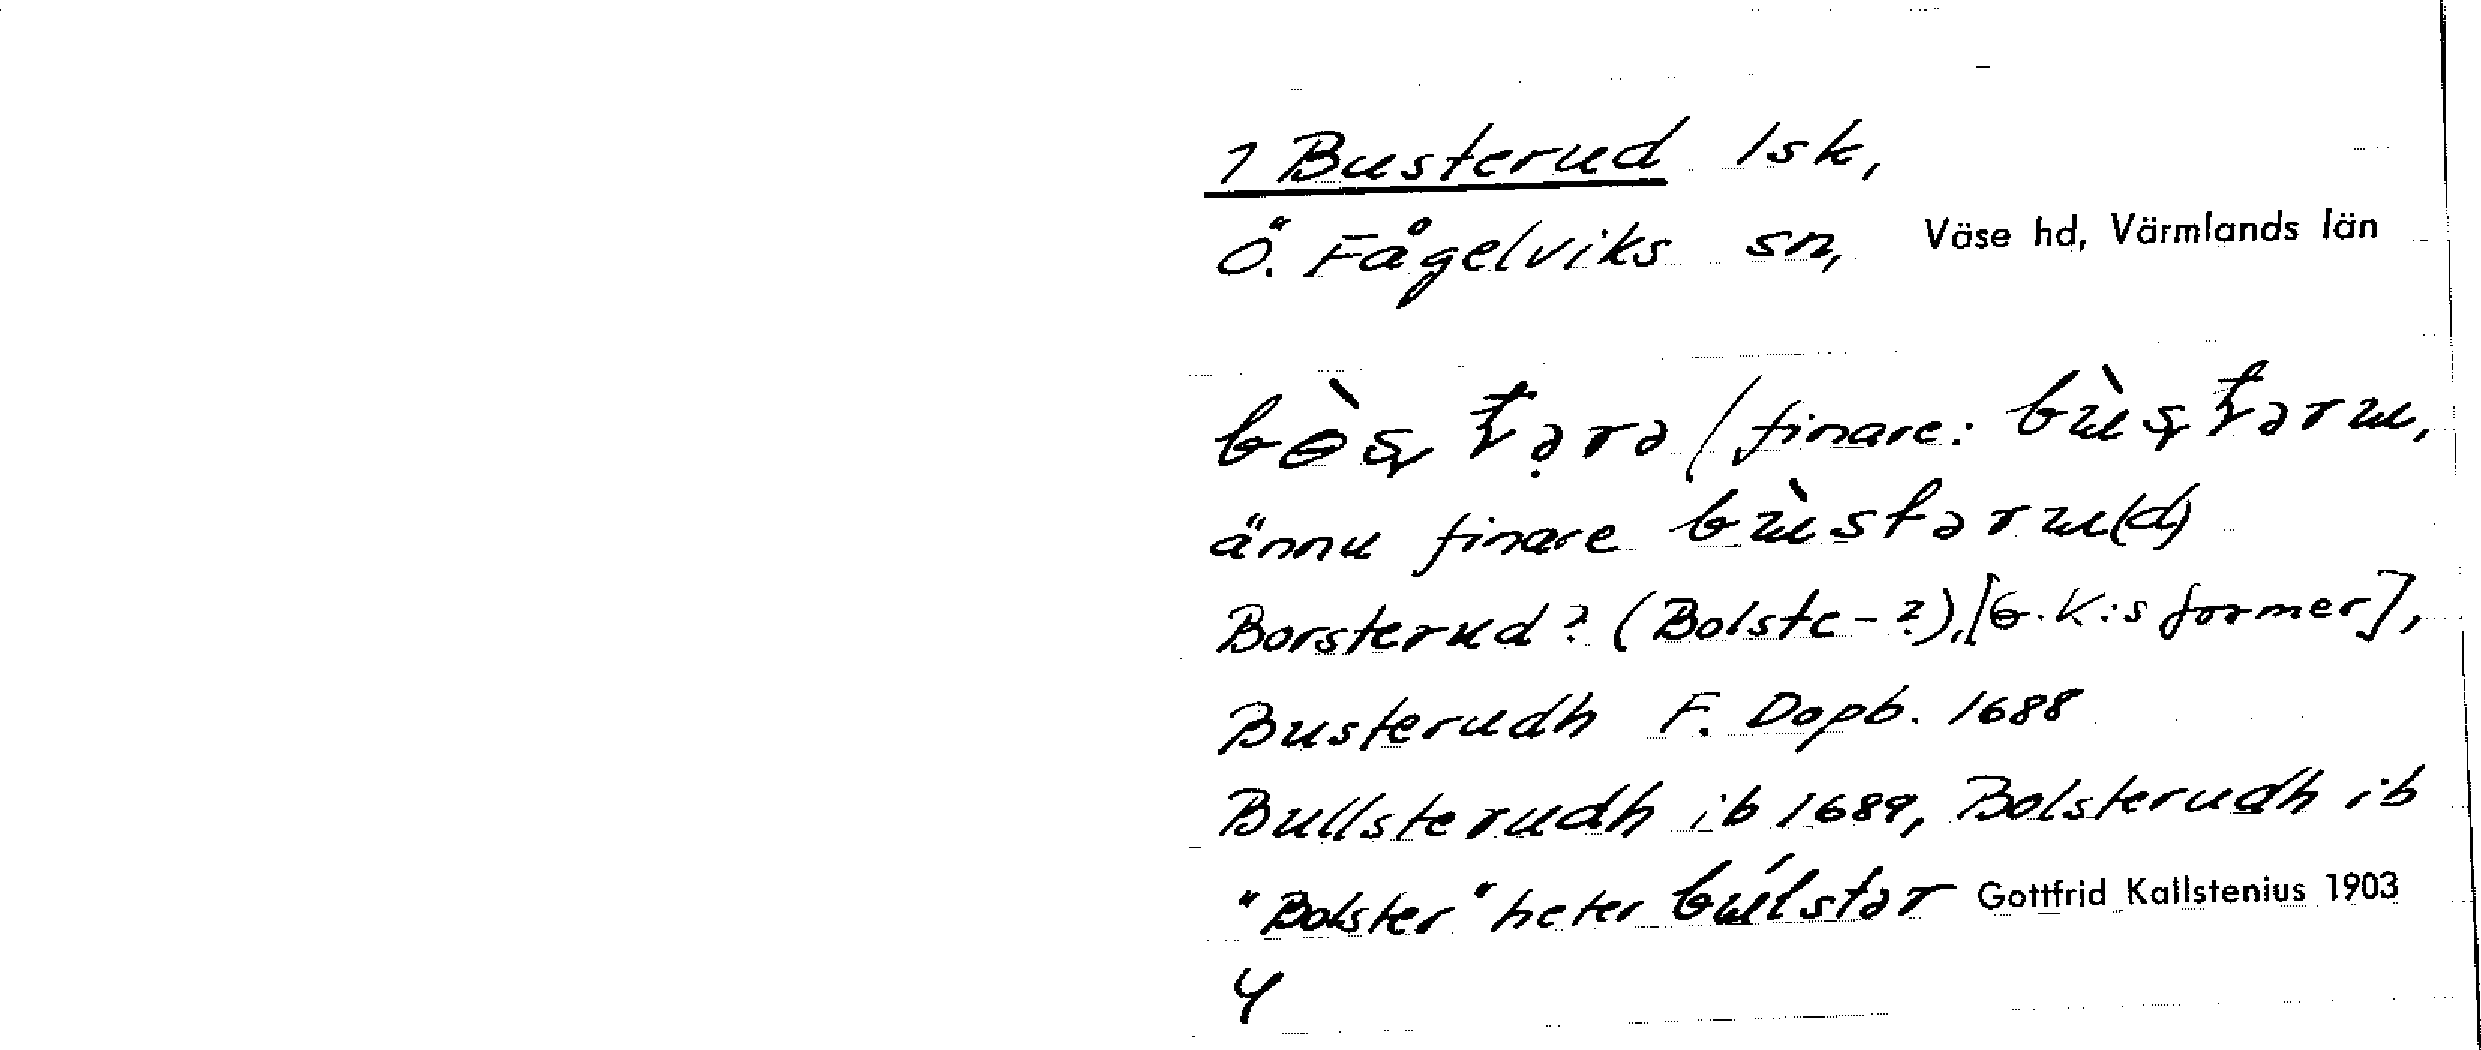 1 Busterud lsk,
Ö. Fågelviks sn, Väse hd, Värmlands län
(finare:
ännu finare
Borsterud? (Bolste-?), [G.K:s former],
Busterudh F. Dopb. 1688
Bullsterudh ib 1689, Bolsterudh ib
"Bolster" heter bùlstər Gottfrid Kallstenius 1903
4